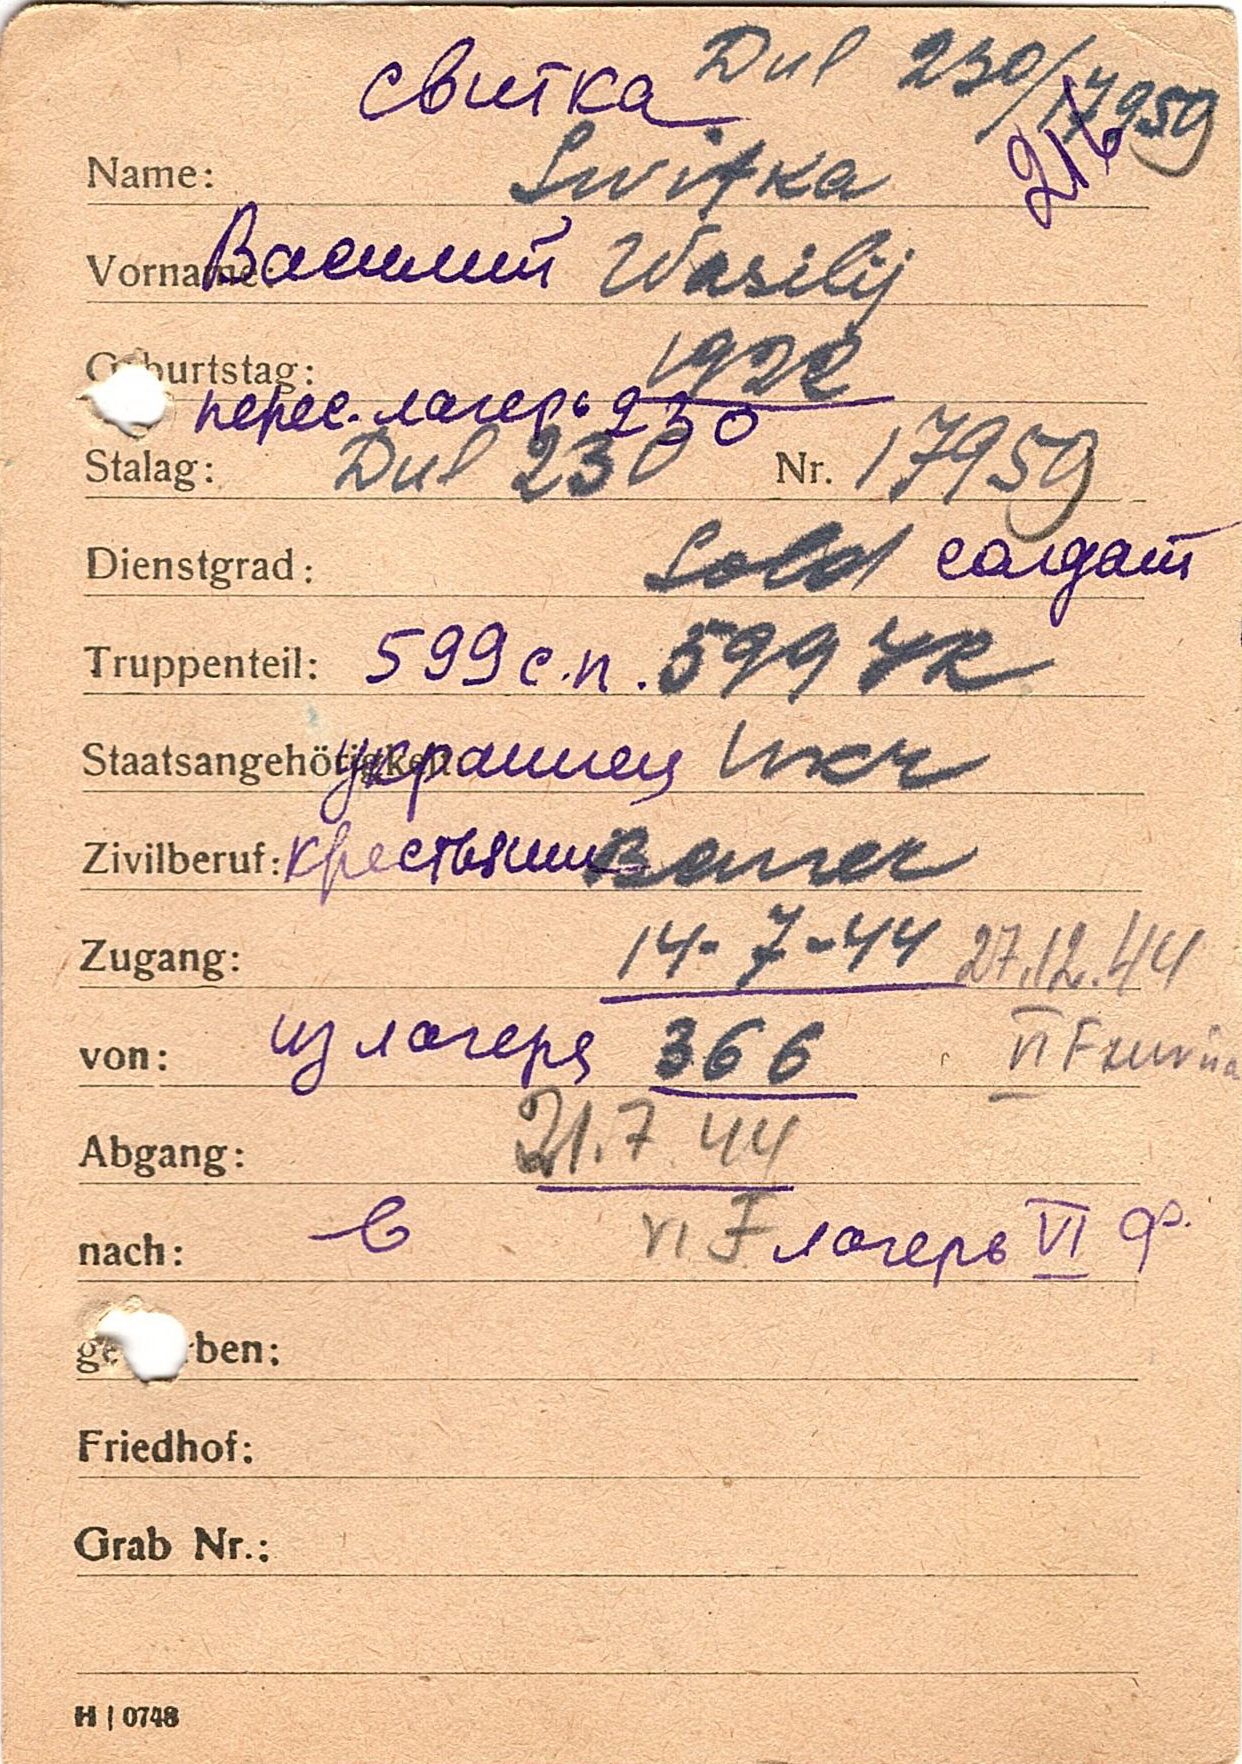 свитка Dul 230/17959
216
Name: Switka
Vorname: Василий Wasilij
Geburtstag: 1922
перес. лагерь 230
Stalag: Dul 230 Nr. 17959
Dienstgrad: Sold солдат
Truppenteil: 599 с.п. 599 JR
Staatsangehörigkeit: украинец Ukr
Zivilberuf: крестьянин Bauer
Zugang: 14-7-44 27.12.44
von: из лагеря 366 VI F
Abgang: 21.7.44
nach: в VI F лагерь VI Ф.
gestorben:
Friedhof:
Grab Nr.:
H | 0748